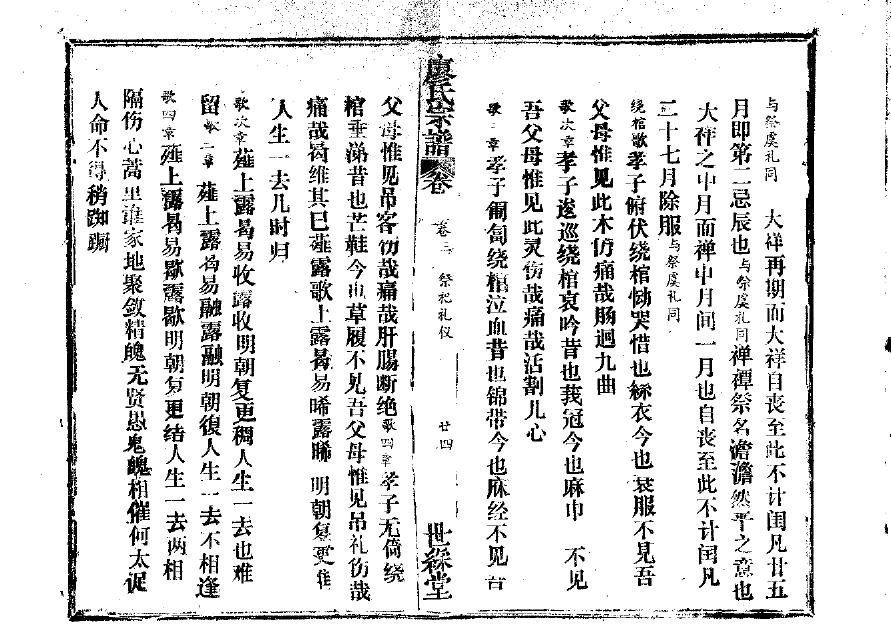 与祭虞礼同　大祥再期而大祥自丧至此不计闰凡廿五
月即第二忌辰也与祭虞礼同禫禫祭名澹澹然平之意也
大祥之中月而禫中月间一月也自丧至此不计闰凡
二十七月除服与祭虞礼同
绕棺歌孝子俯伏绕棺恸哭惜也綵衣今也衰服不見吾
父母惟见此木仿痛哉肠迴九曲
歌次章孝子逡巡绕棺哀吟昔也莪冠今也麻巾　不见
吾父母惟见此灵伤哉痛哉活割儿心
歌三章孝子匍匐绕棺泣血昔也锦带今也麻经不见吉
廖氏宗譜　卷
卷三　祭祀礼仪
廿四
世綵堂
父母惟见吊客伤哉痛哉肝腸断绝歌四章孝子无倚绕
棺垂涕昔也芒鞋今也草履不见吾父母惟见吊礼伤哉
痛哉曷维其已薤露歌上露曷易晞露晞　明朝复更
人生一去几时归
歌次章薤上露曷易收露收明朝复更稠人生一去也难
留歌三章　薤上露曷易融露融明朝復人生一去不相逢
歌四章薤上露曷易歇露歇明朝复更结人生一去两相
隔伤心蒿里谁家地聚敛精魄无贤愚鬼魄相催何太促
人命不得稍踟蹰